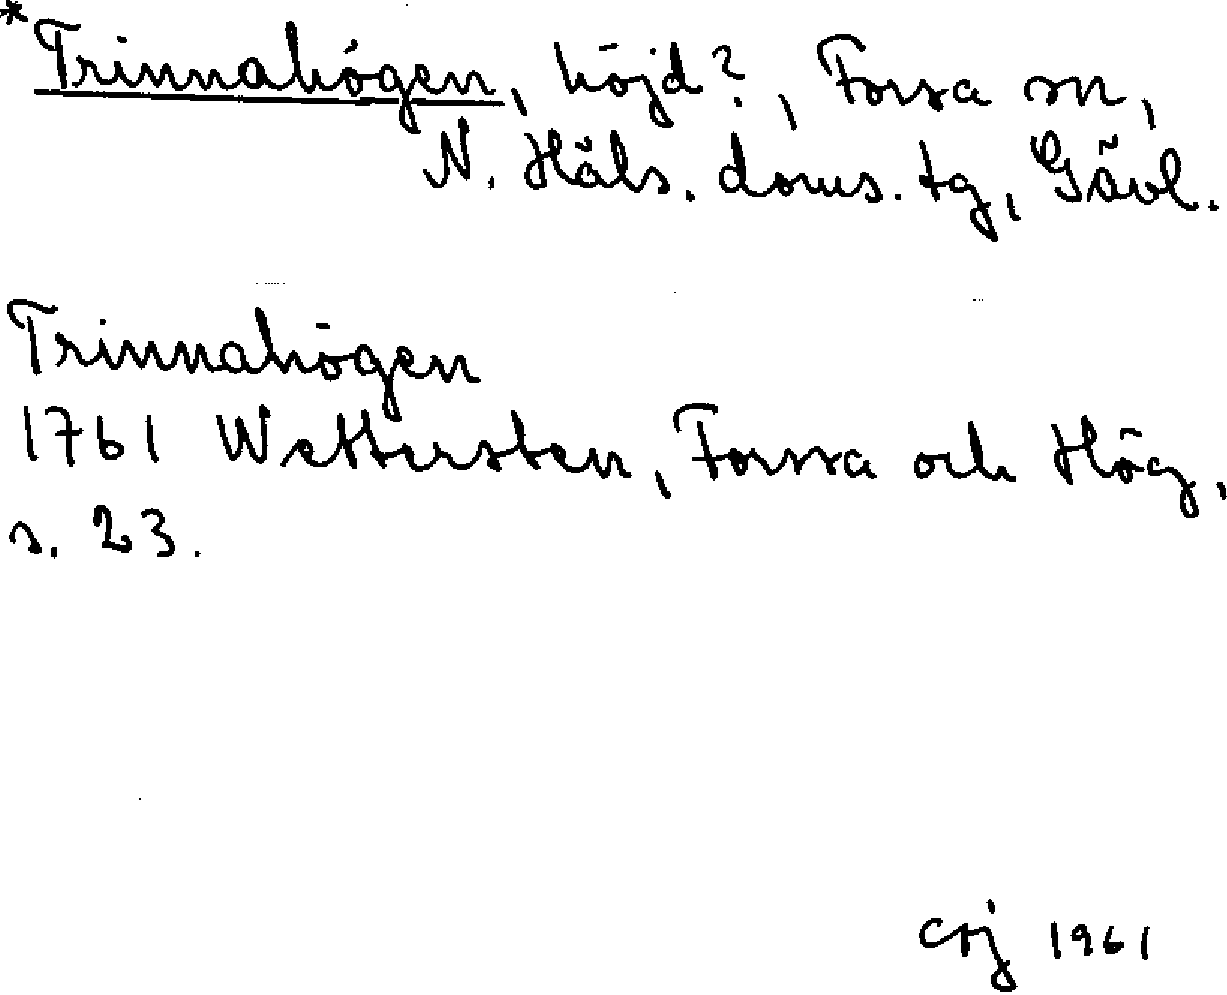 *Trinnahögen, höjd?, Forsa sn,
N. Häls. doms. tg, Gävl.
Trinnahögen
1761 Wettersten, Forssa och Hög,
s. 23.
CSJ 1961